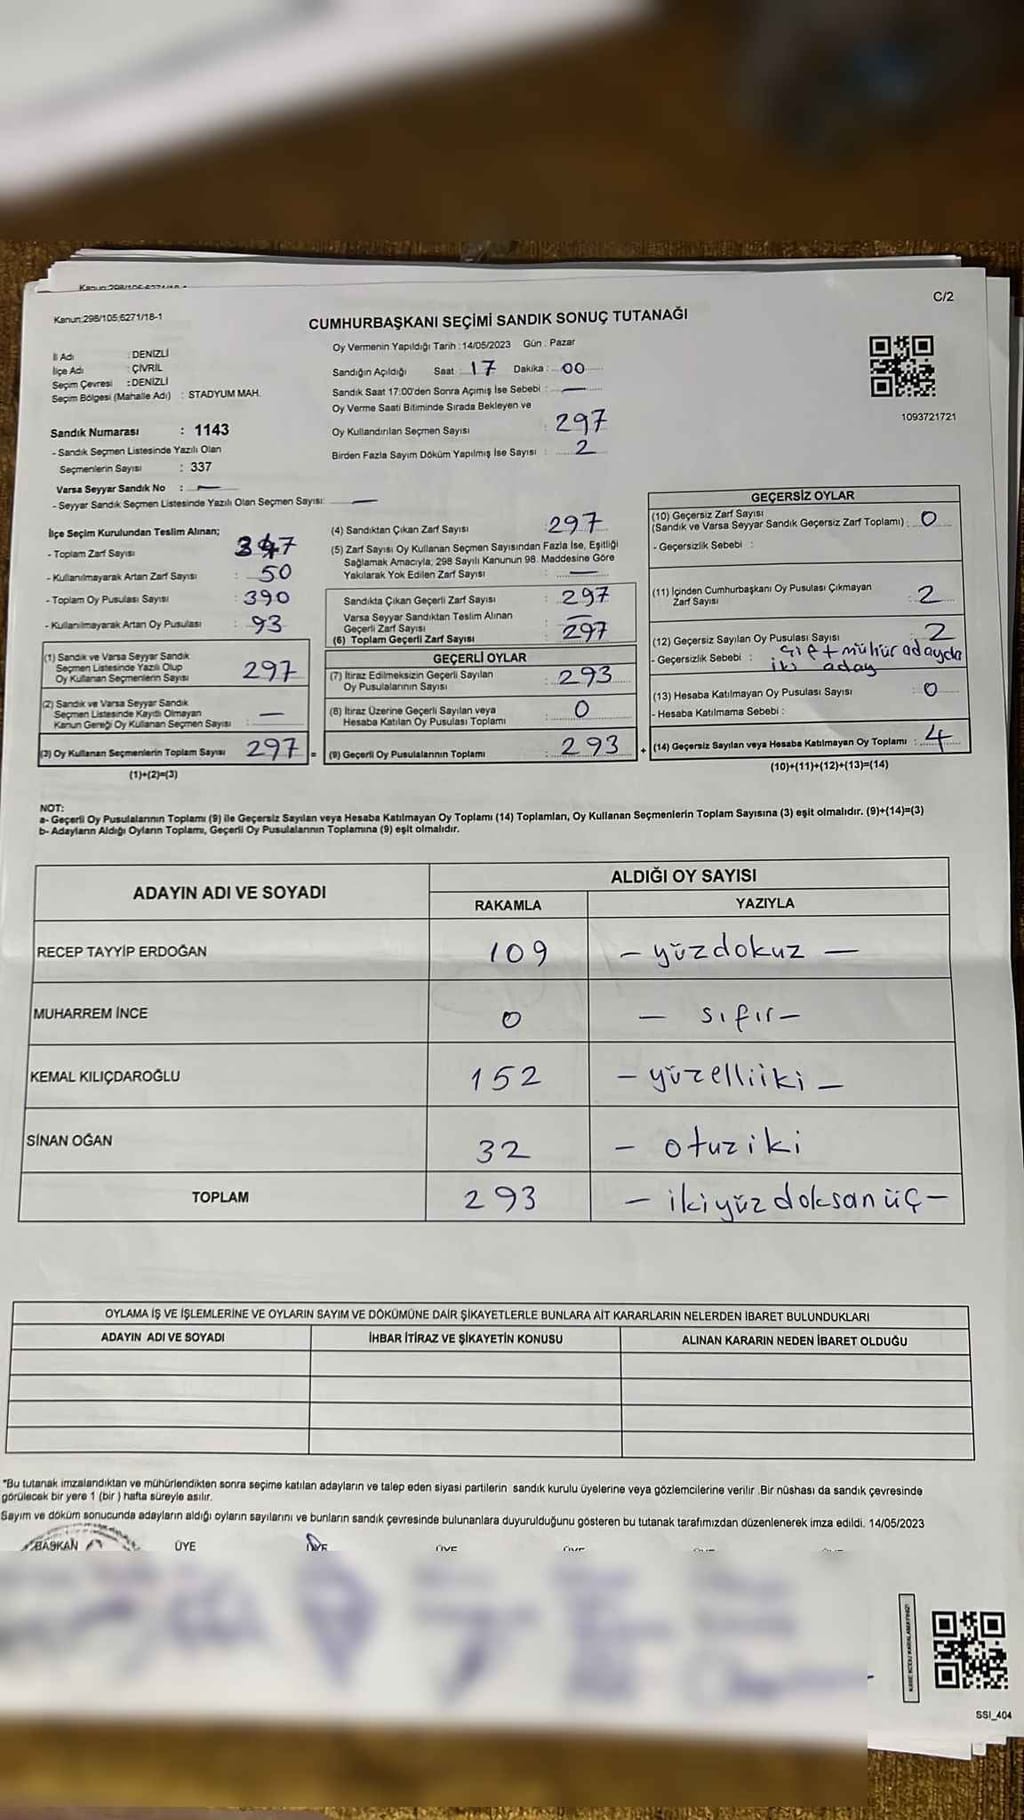 Kanun:298/105,6271/18-1
C/2
CUMHURBAŞKANI SEÇİMİ SANDIK SONUÇ TUTANAĞI
İl Adı : DENİZLİ
İlçe Adı : ÇİVRİL
Seçim Çevresi : DENİZLİ
Seçim Bölgesi (Mahalle Adı) : STADYUM MAH.
Sandık Numarası : 1143
- Sandık Seçmen Listesinde Yazılı Olan
Seçmenlerin Sayısı : 337
Varsa Seyyar Sandık No : —
- Seyyar Sandık Seçmen Listesinde Yazılı Olan Seçmen Sayısı: —
Oy Vermenin Yapıldığı Tarih : 14/05/2023 Gün : Pazar
Sandığın Açıldığı Saat : 17 Dakika : 00
Sandık Saat 17:00'den Sonra Açımış İse Sebebi : —
Oy Verme Saati Bitiminde Sırada Bekleyen ve
Oy Kullandırılan Seçmen Sayısı : 297
Birden Fazla Sayım Döküm Yapılmış İse Sayısı : 2
1093721721
İlçe Seçim Kurulundan Teslim Alınan;
- Toplam Zarf Sayısı : 347
- Kullanılmayarak Artan Zarf Sayısı : 50
- Toplam Oy Pusulası Sayısı : 390
- Kullanılmayarak Artan Oy Pusulası : 93
(1) Sandık ve Varsa Seyyar Sandık
Seçmen Listesinde Yazılı Olup
Oy Kullanan Seçmenlerin Sayısı : 297
(2) Sandık ve Varsa Seyyar Sandık
Seçmen Listesinde Kayıtlı Olmayan
Kanun Gereği Oy Kullanan Seçmen Sayısı : —
(3) Oy Kullanan Seçmenlerin Toplam Sayısı : 297 =
(1)+(2)=(3)
(4) Sandıktan Çıkan Zarf Sayısı : 297
(5) Zarf Sayısı Oy Kullanan Seçmen Sayısından Fazla İse, Eşitliği
Sağlamak Amacıyla; 298 Sayılı Kanunun 98. Maddesine Göre
Yakılarak Yok Edilen Zarf Sayısı : —
Sandıkta Çıkan Geçerli Zarf Sayısı : 297
Varsa Seyyar Sandıktan Teslim Alınan
Geçerli Zarf Sayısı : —
(6) Toplam Geçerli Zarf Sayısı : 297
GEÇERLİ OYLAR
(7) İtiraz Edilmeksizin Geçerli Sayılan
Oy Pusulalarının Sayısı : 293
(8) İtiraz Üzerine Geçerli Sayılan veya
Hesaba Katılan Oy Pusulası Toplamı : 0
(9) Geçerli Oy Pusulalarının Toplamı : 293 +
GEÇERSİZ OYLAR
(10) Geçersiz Zarf Sayısı
(Sandık ve Varsa Seyyar Sandık Geçersiz Zarf Toplamı) : 0
- Geçersizlik Sebebi :
(11) İçinden Cumhurbaşkanı Oy Pusulası Çıkmayan
Zarf Sayısı : 2
(12) Geçersiz Sayılan Oy Pusulası Sayısı : 2
- Geçersizlik Sebebi : çift mühür adayda
iki aday
(13) Hesaba Katılmayan Oy Pusulası Sayısı : 0
- Hesaba Katılmama Sebebi :
(14) Geçersiz Sayılan veya Hesaba Katılmayan Oy Toplamı : 4
(10)+(11)+(12)+(13)=(14)
NOT:
a- Geçerli Oy Pusulalarının Toplamı (9) ile Geçersiz Sayılan veya Hesaba Katılmayan Oy Toplamı (14) Toplamları, Oy Kullanan Seçmenlerin Toplam Sayısına (3) eşit olmalıdır. (9)+(14)=(3)
b- Adayların Aldığı Oyların Toplamı, Geçerli Oy Pusulalarının Toplamına (9) eşit olmalıdır.
ADAYIN ADI VE SOYADI
ALDIĞI OY SAYISI
RAKAMLA YAZIYLA
RECEP TAYYİP ERDOĞAN 109 – yüzdokuz —
MUHARREM İNCE 0 — sıfır –
KEMAL KILIÇDAROĞLU 152 – yüzelliiki –
SİNAN OĞAN 32 – otuziki
TOPLAM 293 – ikiyüz doksan üç –
OYLAMA İŞ VE İŞLEMLERİNE VE OYLARIN SAYIM VE DÖKÜMÜNE DAİR ŞİKAYETLERLE BUNLARA AİT KARARLARIN NELERDEN İBARET BULUNDUKLARI
ADAYIN ADI VE SOYADI İHBAR İTİRAZ VE ŞİKAYETİN KONUSU ALINAN KARARIN NEDEN İBARET OLDUĞU
"Bu tutanak imzalandıktan ve mühürlendikten sonra seçime katılan adayların ve talep eden siyasi partilerin sandık kurulu üyelerine veya gözlemcilerine verilir .Bir nüshası da sandık çevresinde
görülecek bir yere 1 (bir ) hafta süreyle asılır.
Sayım ve döküm sonucunda adayların aldığı oyların sayılarını ve bunların sandık çevresinde bulunanlara duyurulduğunu gösteren bu tutanak tarafımızdan düzenlenerek imza edildi. 14/05/2023
BAŞKAN ÜYE ÜYE ÜYE
SSI_404